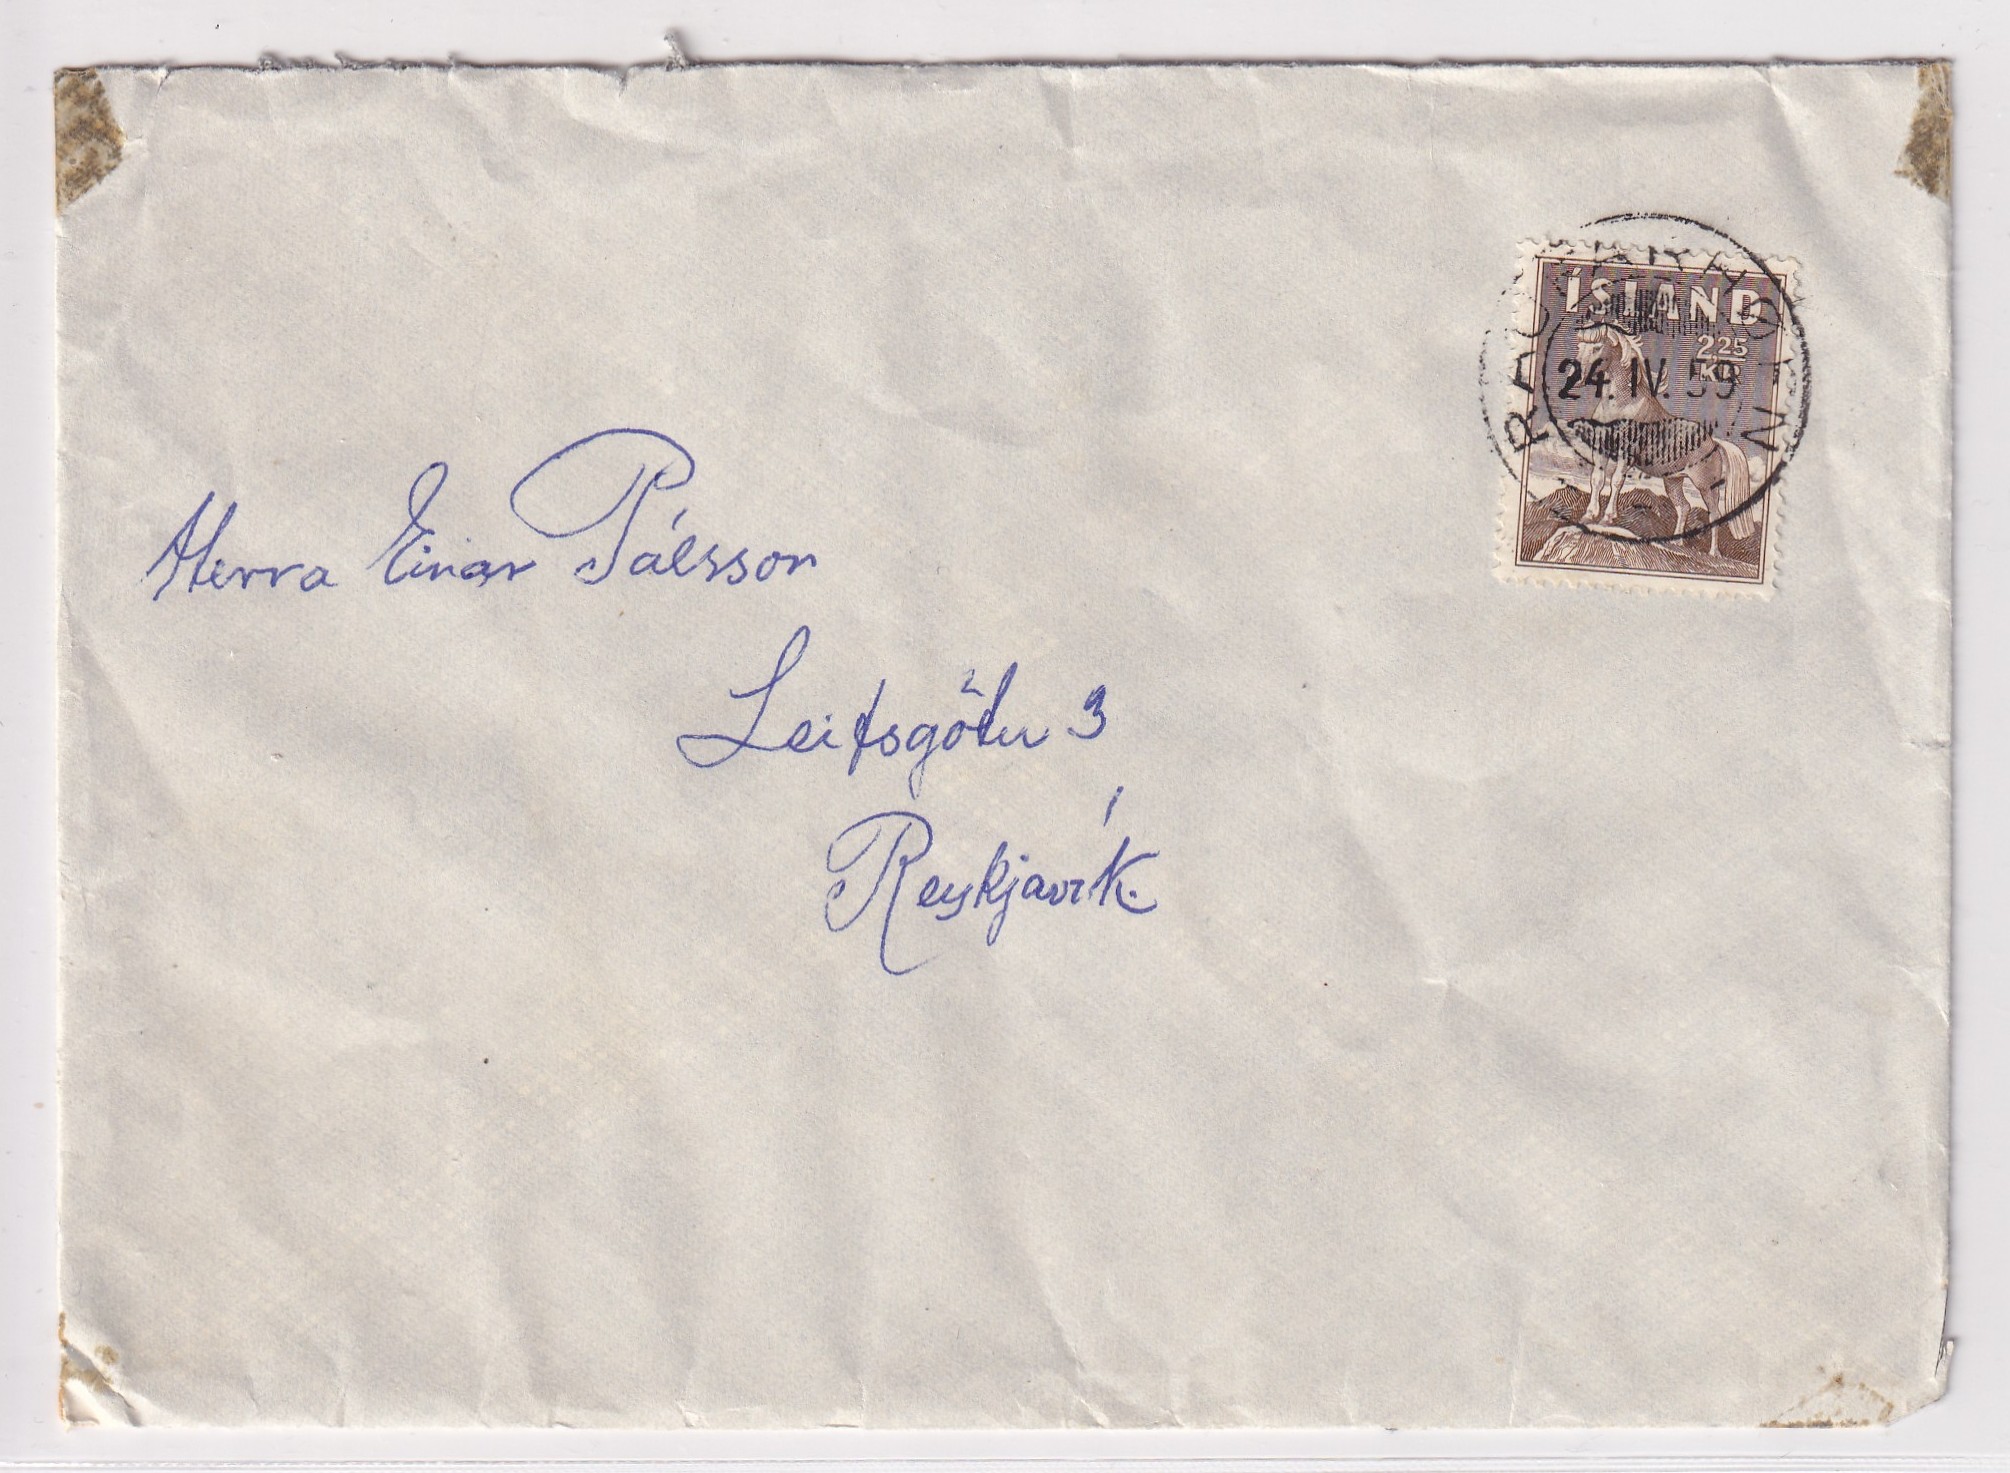 ÍSLAND
2,25
KR
24. IV. 59
Herra Einar Pálsson
Leifsgötu 3
Reykjavík.